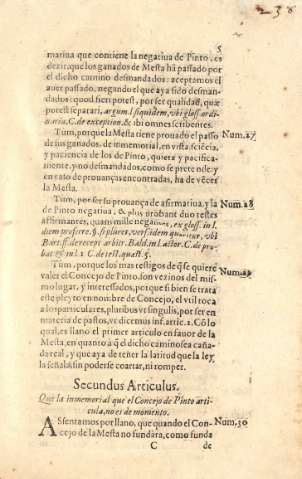 238
5
matiua que contiene la negatiua de Pinto, es
dezir, que los ganados de Mesta hã passado por
el dicho camino desmandados: aceptamos el
auer passado, negando el que aya sido desman-
dados: quod fieri potest, por ser qualidad, quæ
potest separari, argum. l. siquidem, vbi gloss. ordi-
naria, C. de exception. & ibi omnes scribentes.
Tum, porque la Mesta tiene prouado el passo Num.27
de sus ganados, de inmemorial, en vista, sciẽcia,
y paciencia de los de Pinto, quieta y pacifica-
mente, y no desmandados, como se pretende: y
en caso de prouanças encontradas, ha de vẽcer
la Mesta.
Tum, por ser su prouança de afirmatiua, y la Num 28
de Pinto negatiua, & plus probant duo testes
affirmantes, quam mille negantes, ex gloss. in l.
diem proferre. §. si plures, vbi
Bart. ff. de recept. arbitr. Bald. in l. actor. C. de pro-
bat. in l. 1. C. de test. quæst. 5.
Tum, porque los mas testigos de q̃ se quiere Num.29
valer el Concejo de Pinto, son vezinos del mis-
mo lugar, y interessados, porque si bien se trata
este pleyto en nombre de Concejo, el vtil toca
a los particulares, pluribus vs singulis, por ser en
materia de pastos, vt dicemus inf. artic. 2. Cõ lo
qual, es llano el primer articulo en fauor de la
Mesta, en quanto a q̃ el dicho camino sea caña-
da real, y que aya de tener la latitud que la ley
la señala, sin poderse coartar, ni romper.
Secundus Articulus.
Que la inmemorial que el Concejo de Pinto arti-
cula, no es de momento.
ASsentamos por llano, que quando el Con- Num.30
cejo de la Mesta no fundàra, como funda
C de